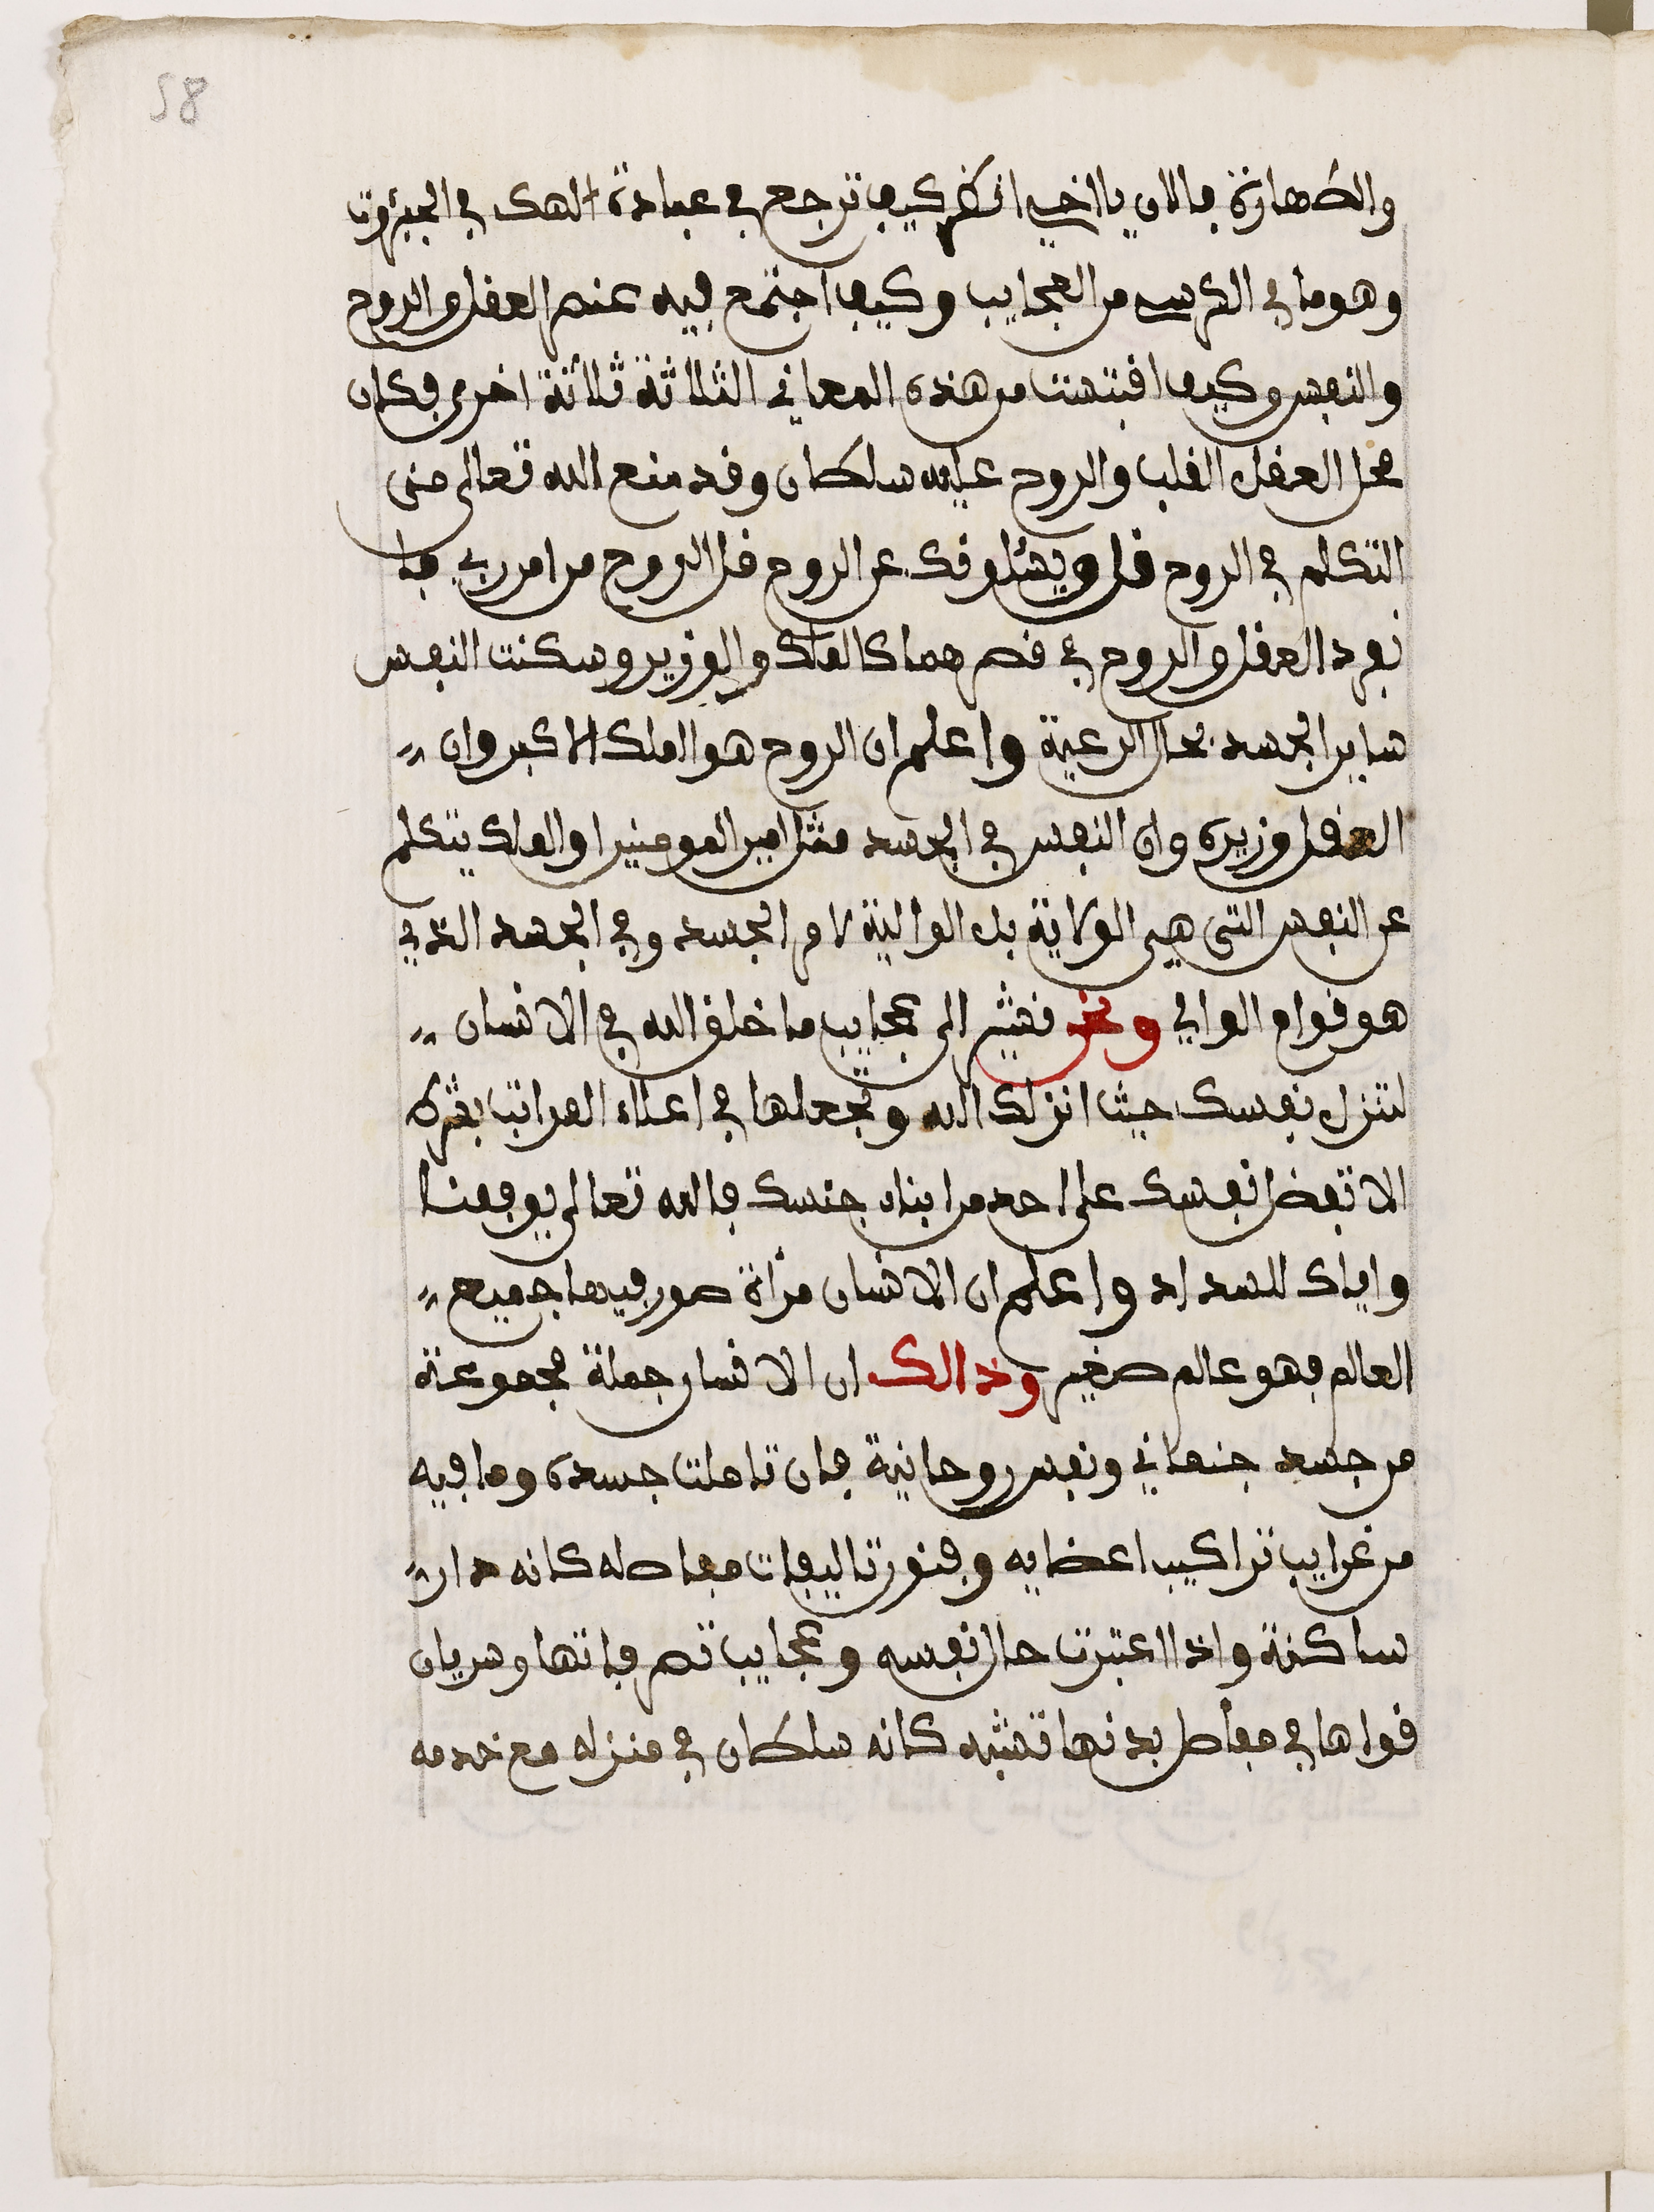 58
والطهارة فالان يا اخي انظر كيف ترجع في عبادة الهك في الجبروت
وهو ما في الكرسي من العجايب وكيف اجتمع فيه عنصر العقل والروح
والنفس وكيف اقتبست من هذه المعاني الثلاثة ثلاثة اخرى فكان
محل العقل القلب والروح عليه سلطان وقد منع الله تعالى من
التكلم في الروح قل ويسئلونك عن الروح قل الروح من امر ربي فا
نفرد العقل والروح في قصرهما كالملك والوزير وسكنت النفس
ساير الجسد بحال الرعية واعلم ان الروح هو الملك الاكبر وان
العقل وزيره وان النفس في الجسد مثل امير المومنين او الملك يتكلم
عن النفس التي هي الولاية بل الوالية لامر الجسد وفي الجسد الذي
هو قوام الوالي ونحن نشير الى عجايب ما خلق الله في الانسان
لتنزل نفسك حيث انزلك الله وتجعلها في اعلاء المراتب بشرط
الا تفضل نفسك على احد من ابناء جنسك فالله تعالى يوفقنا
واياك للسداد واعلم ان الانسان مرأة صور فيها جميع
العالم فهو عالم صغير وذالك ان الانسان جملة مجموعة
من جسد جثماني ونفس روحانية فان تاملت جسده وما فيه
من غرايب تراكيب اعضايه وفنون تاليفات مفاصله كانه دار
ساكنة واذا اعتبرت حال نفسه وعجايب تصرفاتها وسريان
قواها في مفاصل بدنها تشبه كانه سلطان في منزله مع خدمه